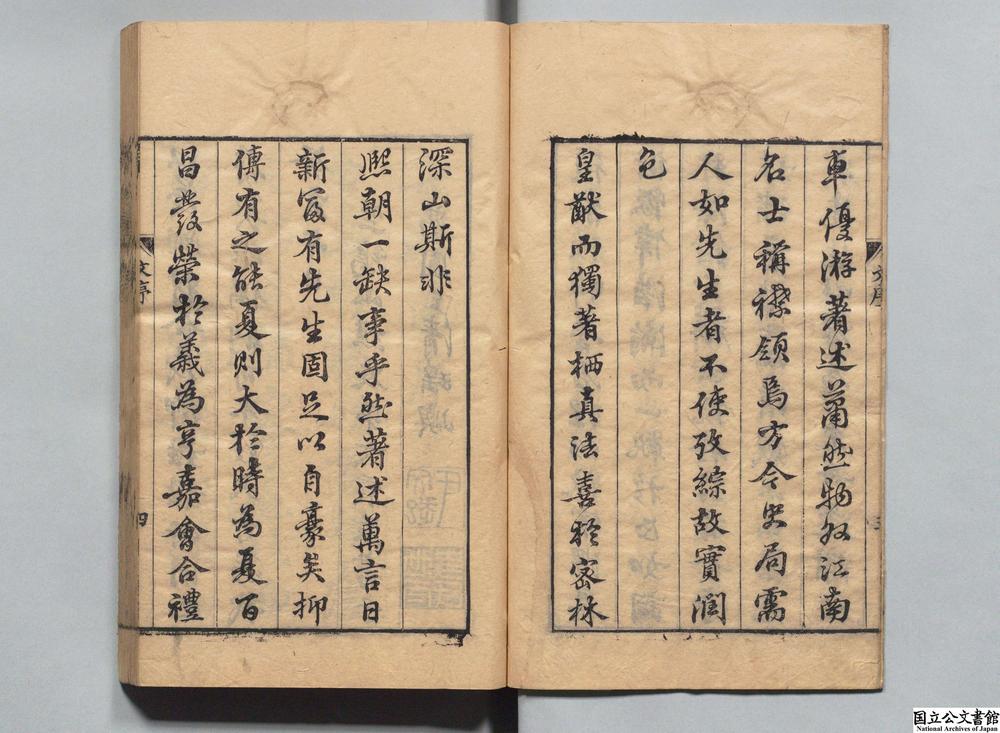 車優游著述蕭然物外江南
名士稱襟領焉方今史局需
人如先生者不使攷綜故實潤
色
皇猷而獨著栖真法喜於密林
文序
三
深山斯非
熈朝一缺事乎然著述萬言日
新富有先生固足以自豪矣抑
傳有之能夏則大於時為夏百
昌發榮於義為亨嘉會合禮
文序
四
国立公文書館
National Archives of Japan